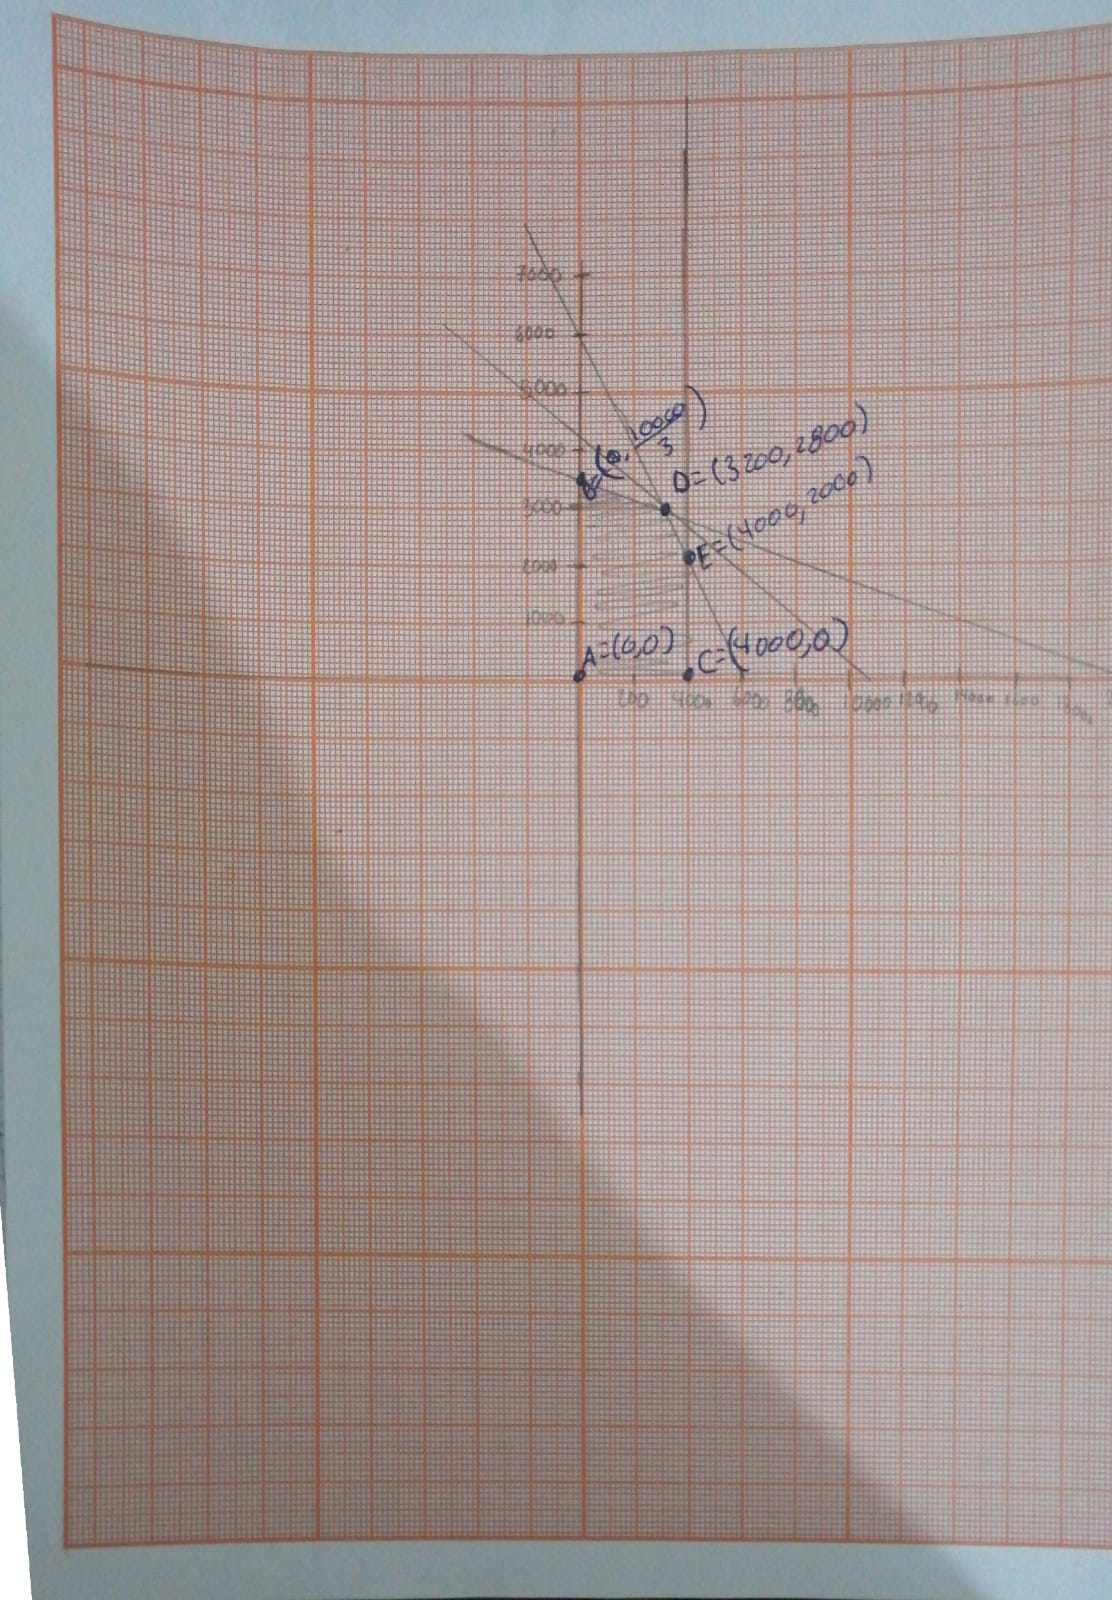 7000
6000
5000
4000
3000
2000
1000
B=(0, 10000/3)
D=(3200, 2800)
E=(4000, 2000)
A=(0,0)
C=(4000,0)
4000 6000 8000 10000